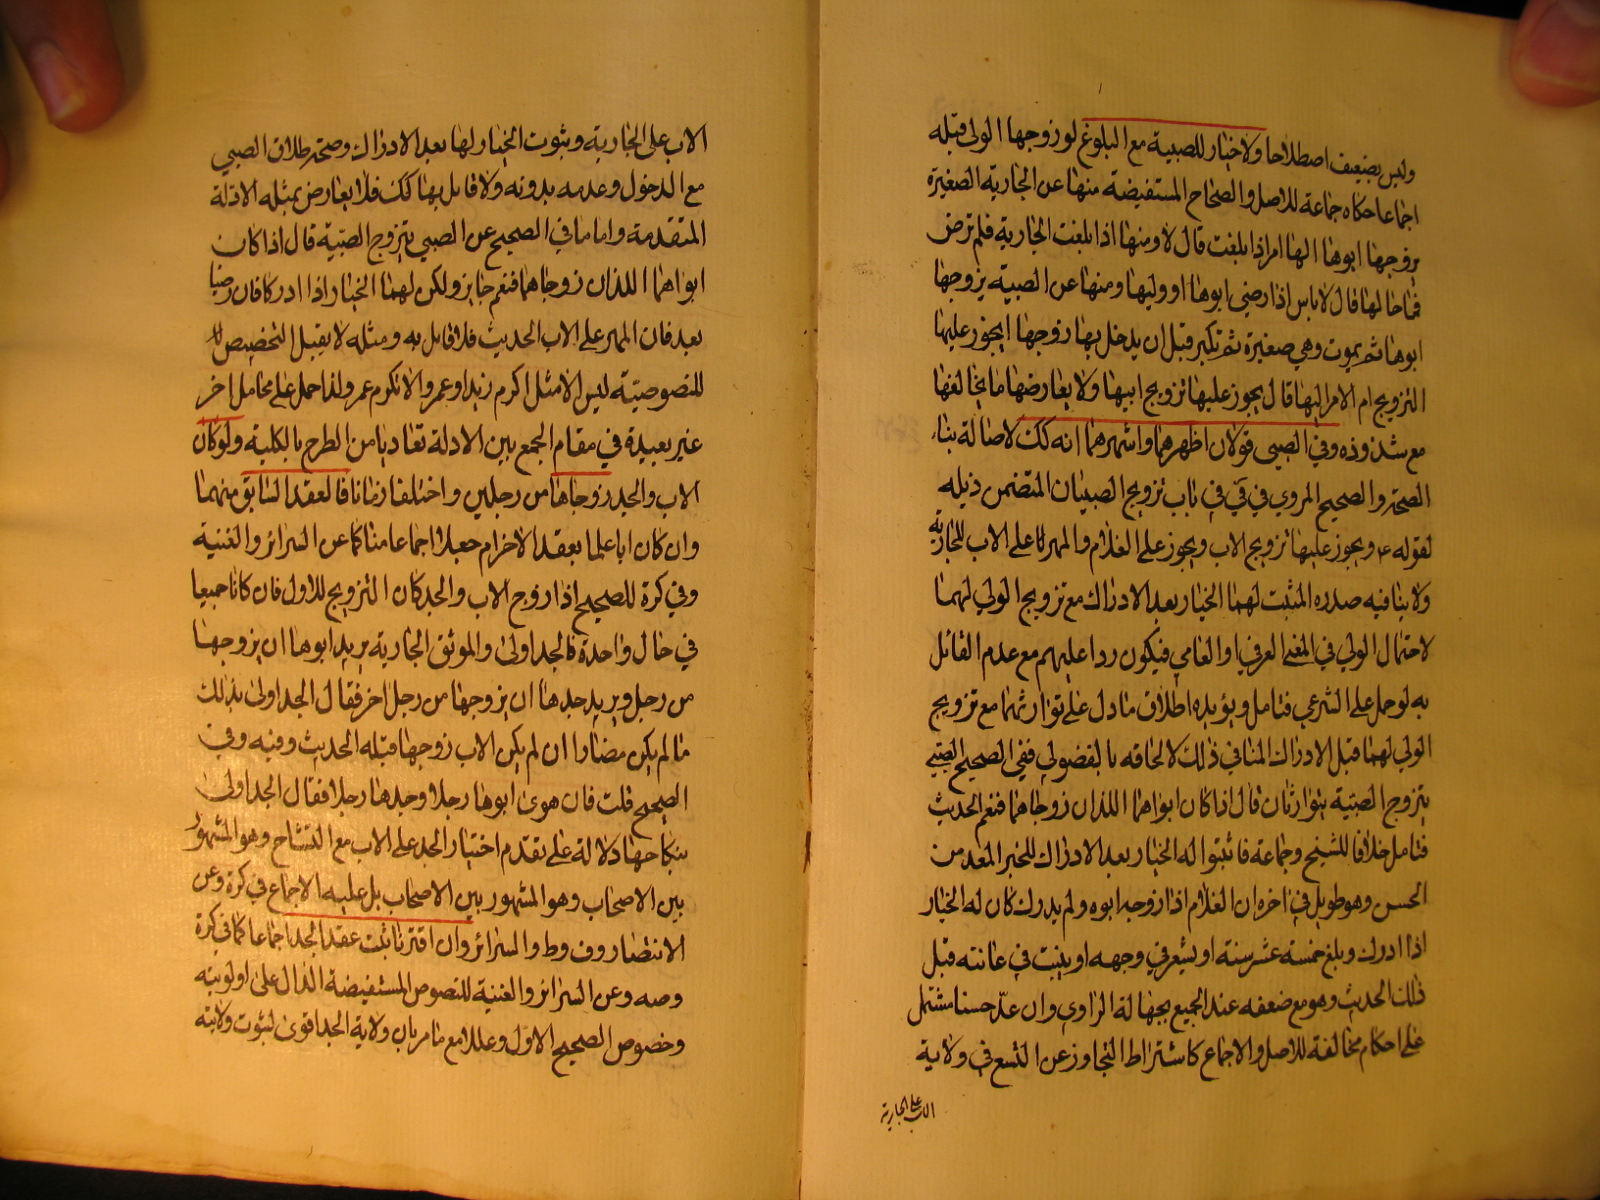 وليس بضعيف اصطلاحا ولاخيار للصبية مع البلوغ لو زوجها الولي قبله
اجماعا حكاه جماعة للاصل والصحاح المستفيضة منها عن الجارية الصغيرة
يزوجها ابوها الها امر اذا بلغت قال لا ومنها اذا بلغت الجارية فلم ترض
فما حالها قال لا باس اذا رضى ابوها او وليها ومنها عن الصبية يزوجها
ابوها ثم يموت وهي صغيرة ثم تكبر قبل ان يدخل بها زوجها ايجوز عليها
التزويج ام الامر اليها قال يجوز عليها تزويج ابيها ولا يعارضها ما يخالفها
مع شذوذه وفي الصبي قولان اظهرهما واشهرهما انه كك لاصالة بقاء
الصحة والصحيح المروي في في في باب تزويج الصبيان المتضمن ذيله
لقوله ع ويجوز عليها تزويج الاب ويجوز على الغلام والمهر على الاب للجارية
ولا ينافيه صدره المثبت لهما الخيار بعد الادراك مع تزويج الولي لهما
لاحتمال الولي في المعنى العرفي او العامي فيكون ردا عليهم مع عدم القائل
به لو حمل على الشرعي فتامل ويؤيده اطلاق ما دل على توارثهما مع تزويج
الولي لهما قبل الادراك المنافي ذلك لالحاقه بالفضولي ففي الصحيح الصبي
يتزوج الصبية يتوارثان قال اذا كان ابواهما اللذان زوجاهما فنعم الحديث
فتامل خلافا للشيخ وجماعة فاثبتوا له الخيار بعد الادراك للخبر المعد من
الحسن وهو طويل في اخره ان الغلام اذا زوجه ابوه ولم يدرك كان له الخيار
اذا ادرك وبلغ خمسة عشر سنة او يشعر في وجهه او ينبت في عانته قبل
ذلك الحديث وهو مع ضعفه عند الجميع بجهالة الراوي وان عد حسنا مشتمل
على احكام مخالفة للاصل والاجماع كاشتراط التجاوز عن التسع في ولاية
الاب على الجارية
الاب على الجارية وثبوت الخيار لها بعد الادراك وصحة طلاق الصبي
مع الدخول وعدمه بدونه ولا قائل بها كك فلا يعارض بمثله الادلة
المتقدمة واما ما في الصحيح عن الصبي يتزوج الصبية قال اذا كان
ابواهما اللذان زوجاهما فنعم جايز ولكن لهما الخيار اذا ادركا فان رضيا
بعد فان المهر على الاب الحديث فلا قائل به ومثله لا يقبل التخصيص
للنصوصية ليس الا مثل اكرم زيدا وعمرو الا تكرم عمرو ولذا حمل على محامل اخر
غير بعيدة في مقام الجمع بين الادلة تفاديا من الطرح بالكلية ولو كان
الاب والجد زوجاها من رجلين واختلفا زمانا فالعقد السابق منهما
وان كان ابا علما بعقد الاخر ام جهلا اجماعا منا كما عن السرائر والغنية
وفي كرة للصحيح اذا زوج الاب والجد كان التزويج للاول فان كانا جميعا
في حال واحدة فالجد اولى والموثق الجارية يريد ابوها ان يزوجها
من رجل ويريد جدها ان يزوجها من رجل اخر فقال الجد اولى بذلك
ما لم يكن مضارا ان لم يكن الاب زوجها قبله الحديث وفيه وفي
الصحيح قلت فان هوى ابوها رجلا وجدها رجلا فقال الجد اولى
بنكاحها دلالة على تقدم اختيار الجد على الاب مع التشاح وهو المشهور
بين الاصحاب وهو المشهور بين الاصحاب بل عليه الاجماع في كرة وعن
الانتصار وف وط والسرائر وان اقترنا ثبت عقد الجد اجماعا كما في كرة
وضه وعن السرائر والغنية للنصوص المستفيضة الدال على اولويته
وخصوص الصحيح الاول وعلل مع ما مر بان ولاية الجد اقوى لثبوت ولايته